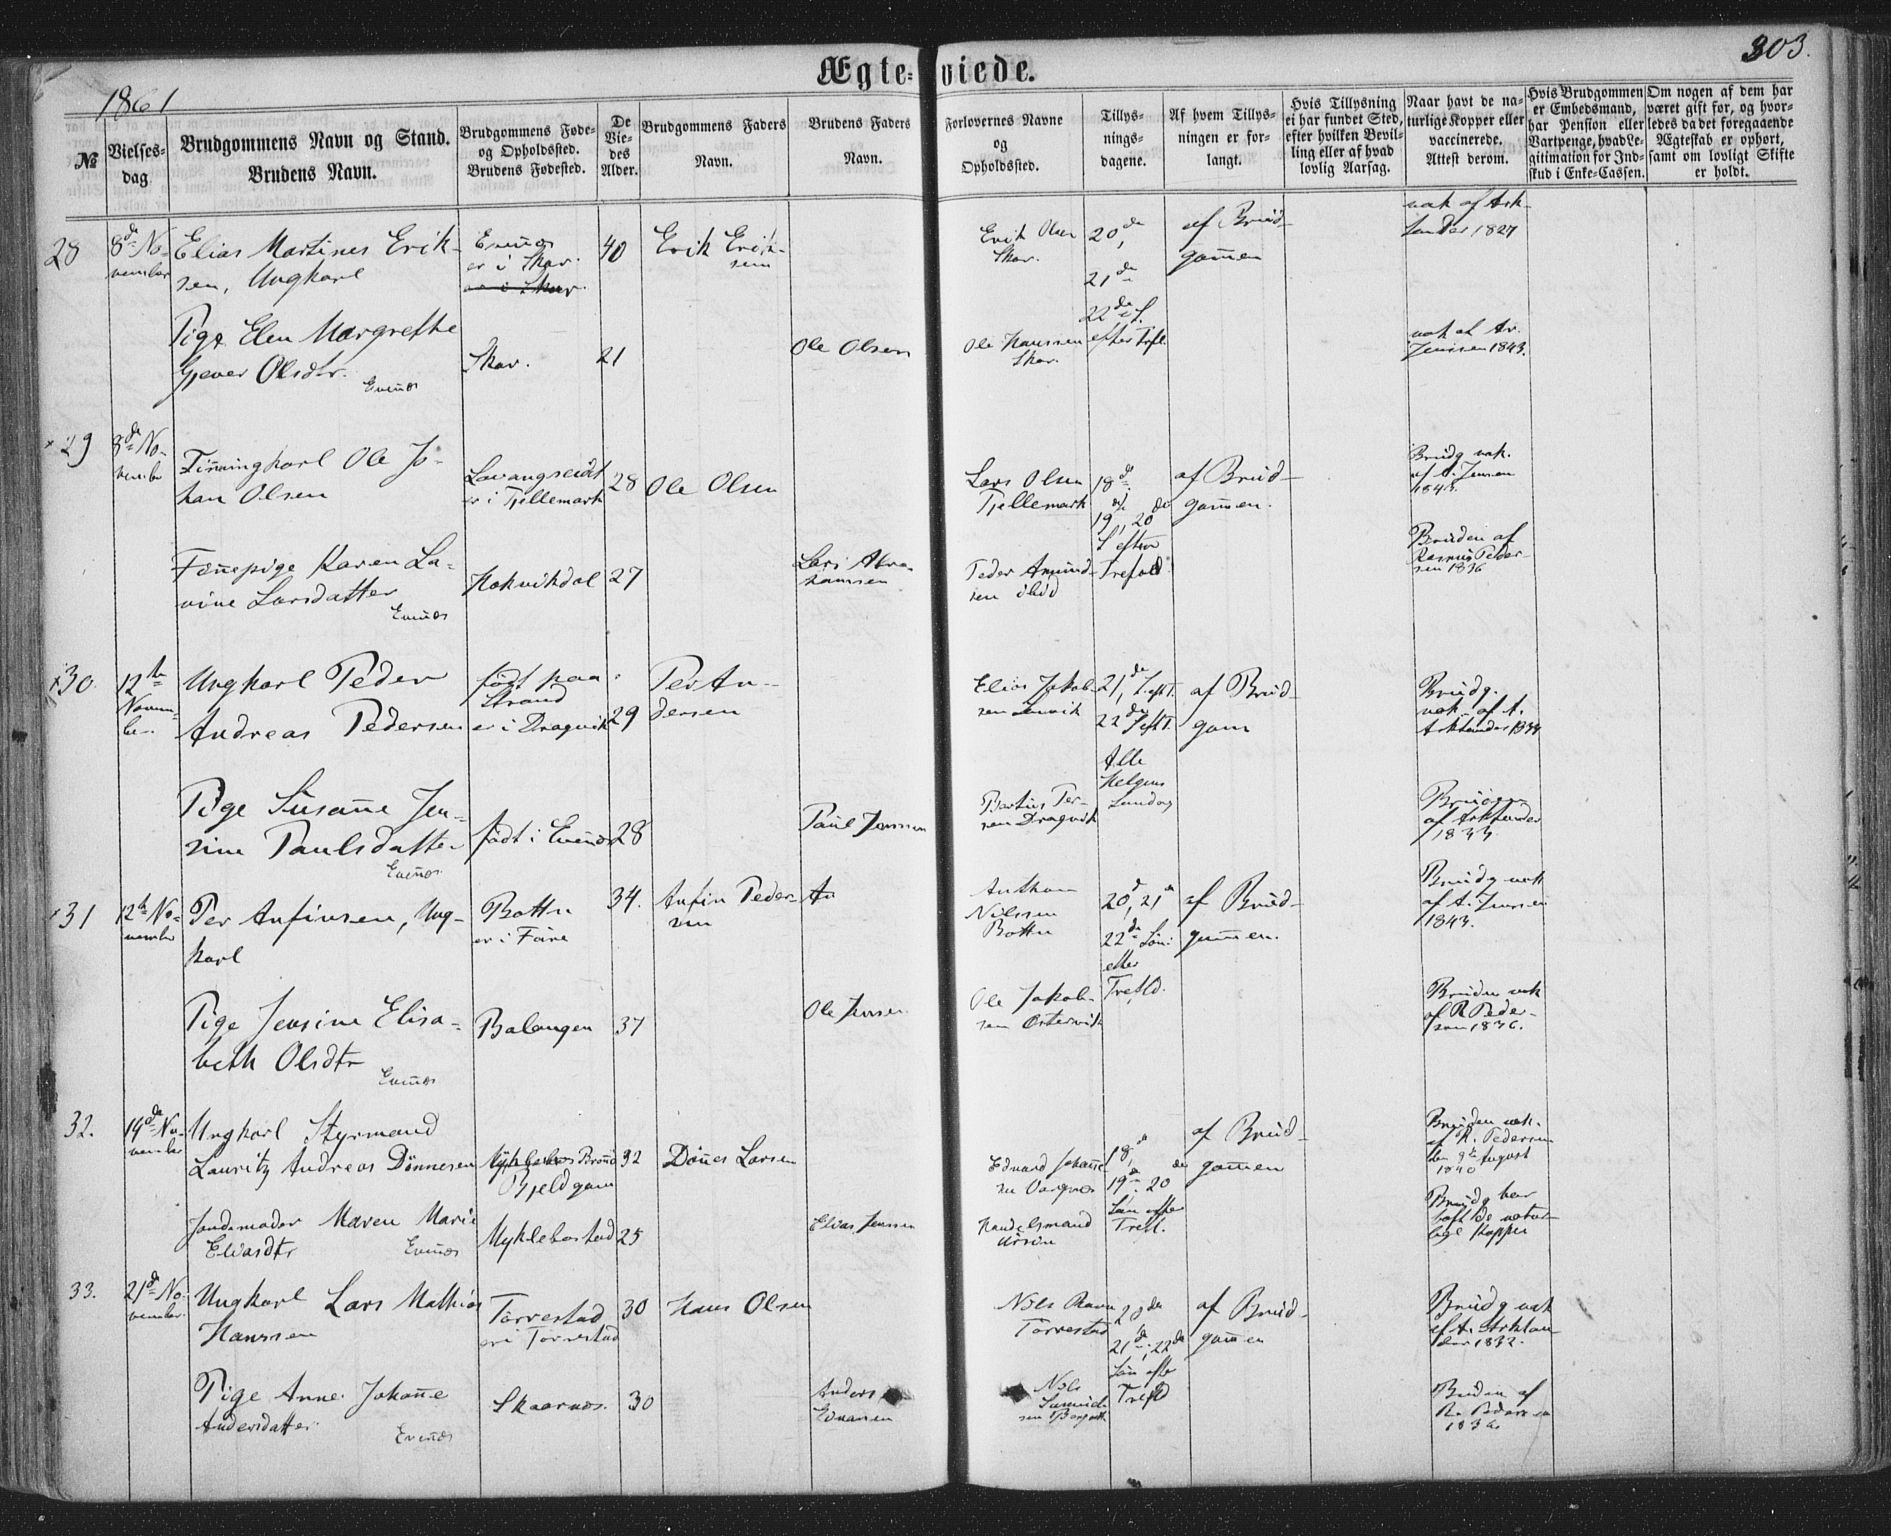 303.
Ægte-viede.
1861
№
Vielses-
dag
Brudgommens Navn og Stand.
Brudens Navn.
Brudgommens Føde-
og Opholdssted.
Brudens Fødested.
De
Vie-
des
Alder.
Brudgommens Faders
Navn.
Brudens Faders
Navn.
Forlovernes Navne
og
Opholdssted.
Tillys-
nings-
dagene.
Af hvem Tillys-
ningen er for-
langt.
Hvis Tillysning
ei har fundet Sted,
efter hvilken Bevil-
ling eller af hvad
lovlig Aarsag.
Naar havt de na-
turlige Kopper eller
vaccinerede.
Attest derom.
Hvis Brudgommen
er Embedsmand,
har Pension eller
Vartpenge, hvad Le-
gitimation for Ind-
skud i Enke-Cassen.
Om nogen af dem har
været gift før, og hvor-
ledes da det foregaaende
Ægteskab er ophørt,
samt om lovligt Skifte
er holdt.
28
8de No-
vember
Elias Martines Erik-
sen, Ungkarl
Evenæs
er i Skar.
40
Erik Erik-
sen
Erik Olsen
Skar.
20de,
21de
22de S.
efter Trf.
af Brud-
gommen
vak af Ark-
lander 1827
Pige Elen Margrethe
Gjever Olsdtr.
Evenæs
Skar.
21
Ole Olsen
Ole Hanssen
Skar.
vak af Ar.
Jenssen 1843.
29
8de No-
vember
Finnungkarl Ole Jo-
han Olsen
Lavangseidt
er i Tjellemark
28
Ole Olsen
Lars Olsen
Tjellemark
18de
19, 20de
S efter
Trefold
af Brud-
gommen.
Brudg vak.
af A. Jenssen
1843.
Finnepige Karen La-
vine Larsdatter
Evenæs
Kokvikdal
27
Lars Abra-
hamsen
Peder Amund-
sen ibid
Bruden af
Rasmus Peder-
sen 1836
30.
12te
Novem-
ber
Ungkarl Peder
Andreas Pedersen
født paa
Strand
er i Dragvik
29
Per An-
dersen
Elias Jakob-
sen
21de S. eft T.
22de S eft T.
Alle
Helgens
Sondag
af Brud-
gom
Brudg.
vak. af A.
Arklander
Pige Susanne Jen-
sine Paulsdatter
Evenæs
født i Evenæs
28
Paul Jenssen
Bertius Per-
sen Dragvik
af Arklander
1833
31
12te No-
vember
Per Anfinsen, Ung-
karl
Botten
er i Före
34.
Anfin Peder-
sen
An
Anthon
Nilssen
Botten
20, 21de
22de Søn.
efter
Trefld.
af Brud-
gommen.
Brudg vak
af A. Jenssen
1843.
Pige Jensine Elisa-
beth Olsdtr
Evenæs
Balangen
37
Ole Jensen
Ole Jakob-
sen Østervik
Bruden vak
af R Peder-
sen 1836.
32.
14de No-
vember
Ungkarl Styrmand
Lauritz Andreas Dönnesen
Bjeldgam
32
Dönnes Larsen
Edvard Johanne-
sen
18de,
19de, 20de
Søn efter
Trefl.
af Brud-
gommen
Bruden vak.
af R. Pedersen
den 9de August
1840
Jordemoder Maren Marie
Eliasdtr
Evenæs
Myklebostad
25
Elias Jenssen
Handelsmand
Brudg har
haft de natur-
lige Kopper
33.
21de No-
vember
Ungkarl Lars Mathias
Hanssen
Torrestad
er i Torrestad
30
Hans Olsen
Nils Ravn
Torrestad
20de
21de, 22de
Søn efter
Trefld
af Brud-
gommen
Brudg vak
af A. Arklan-
der 1832.
Pige Anne Johanne
Andersdatter
Evenæs
Skaarnæs.
30
Anders
Nils
Bruden af
R. Pedersen
1836